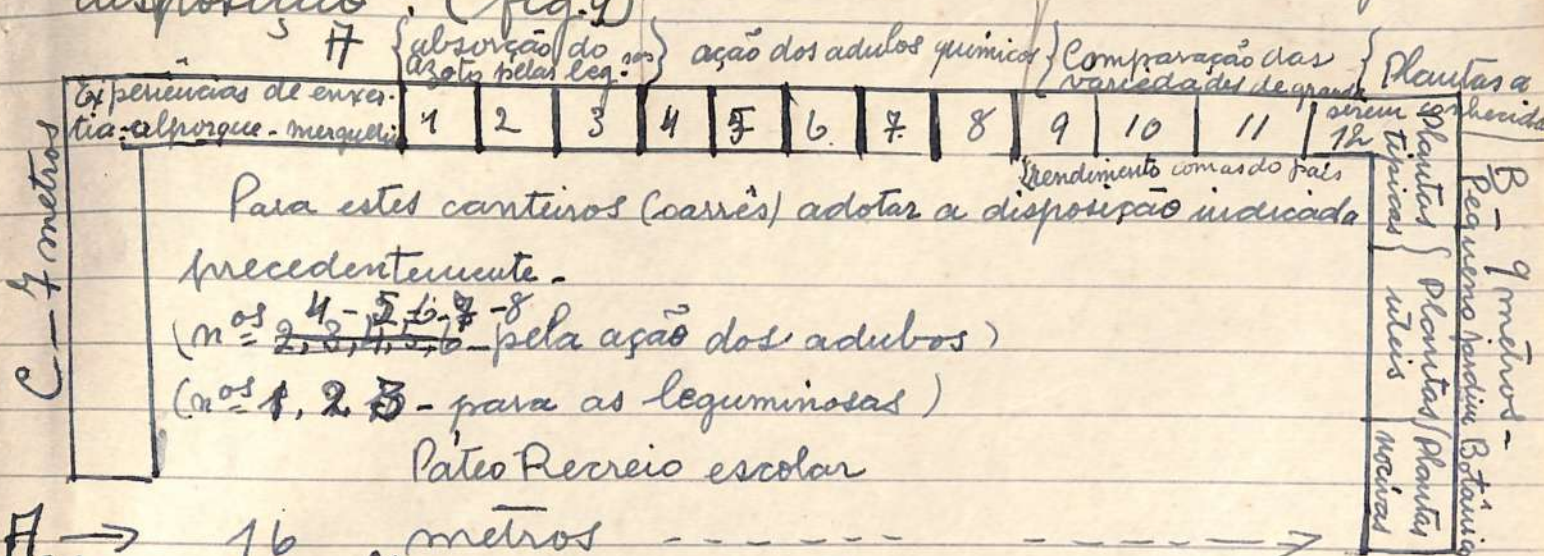 disposição. (fig. 9)
A { absorção do azoto pelas leg.sas } ação dos adubos químicos } Comparação das variedades de grande { Plantas a serem conhecidas
Experiências de enxer-
tia-alporque-mergulhia
1 2 3 4 5 6. 7. 8 9 10 11 12
rendimento com as do país
Para estes canteiros (carrés) adotar a disposição indicada
precedentemente-
4 - 5 - 6 - 7 - 8
(nos 2, 3, 4, 5, 6 - pela ação dos adubos)
(nos 1, 2 3 - para as leguminosas)
Páteo Recreio escolar
A → 16 metros
C - 7 metros
Plantas típicas { Plantas uteis { Plantas nocivas
B - 9 metros -
Pequeno jardim Botânico